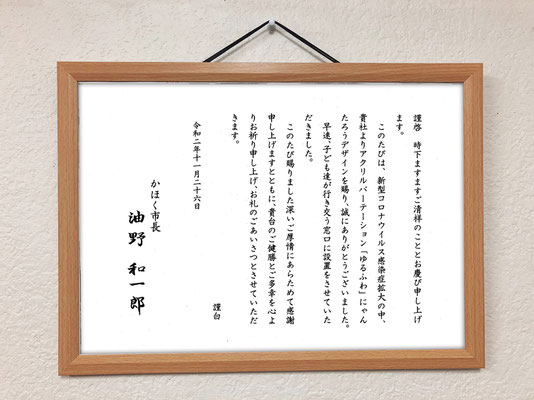 謹啓　時下ますますご清祥のこととお慶び申し上げ
ます。
このたびは、新型コロナウイルス感染症拡大の中、
貴社よりアクリルパーテーション「ゆるふわ」にゃん
たろうデザインを賜り、誠にありがとうございました。
早速、子ども達が行き交う窓口に設置をさせていた
だきました。
このたび賜りました深いご厚情にあらためて感謝
申し上げますとともに、貴台のご健勝とご多幸を心よ
りお祈り申し上げ、お礼のごあいさつとさせていただ
きます。
謹白
令和二年十一月二十六日
かほく市長
油野 和一郎